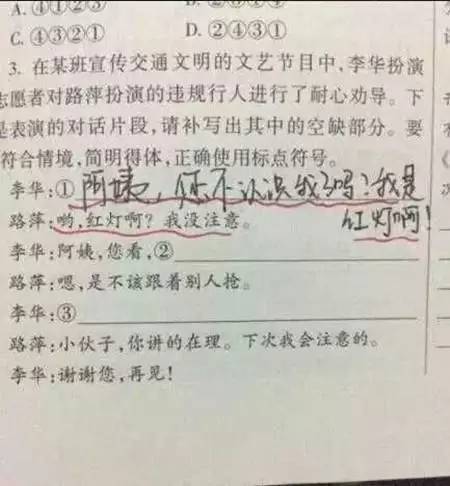 A. ④①②③
C. ④③②①
D. ②④③①
3. 在某班宣传交通文明的文艺节目中,李华扮演
志愿者对路萍扮演的违规行人进行了耐心劝导。下
是表演的对话片段,请补写出其中的空缺部分。要
符合情境,简明得体,正确使用标点符号。
李华:①阿姨，你不认识我了吗?我是
红灯啊!
路萍:哟,红灯啊? 我没注意。
李华:阿姨,您看,②
路萍:嗯,是不该跟着别人抢。
李华:③
路萍:小伙子,你讲的在理。下次我会注意的。
李华:谢谢您,再见!